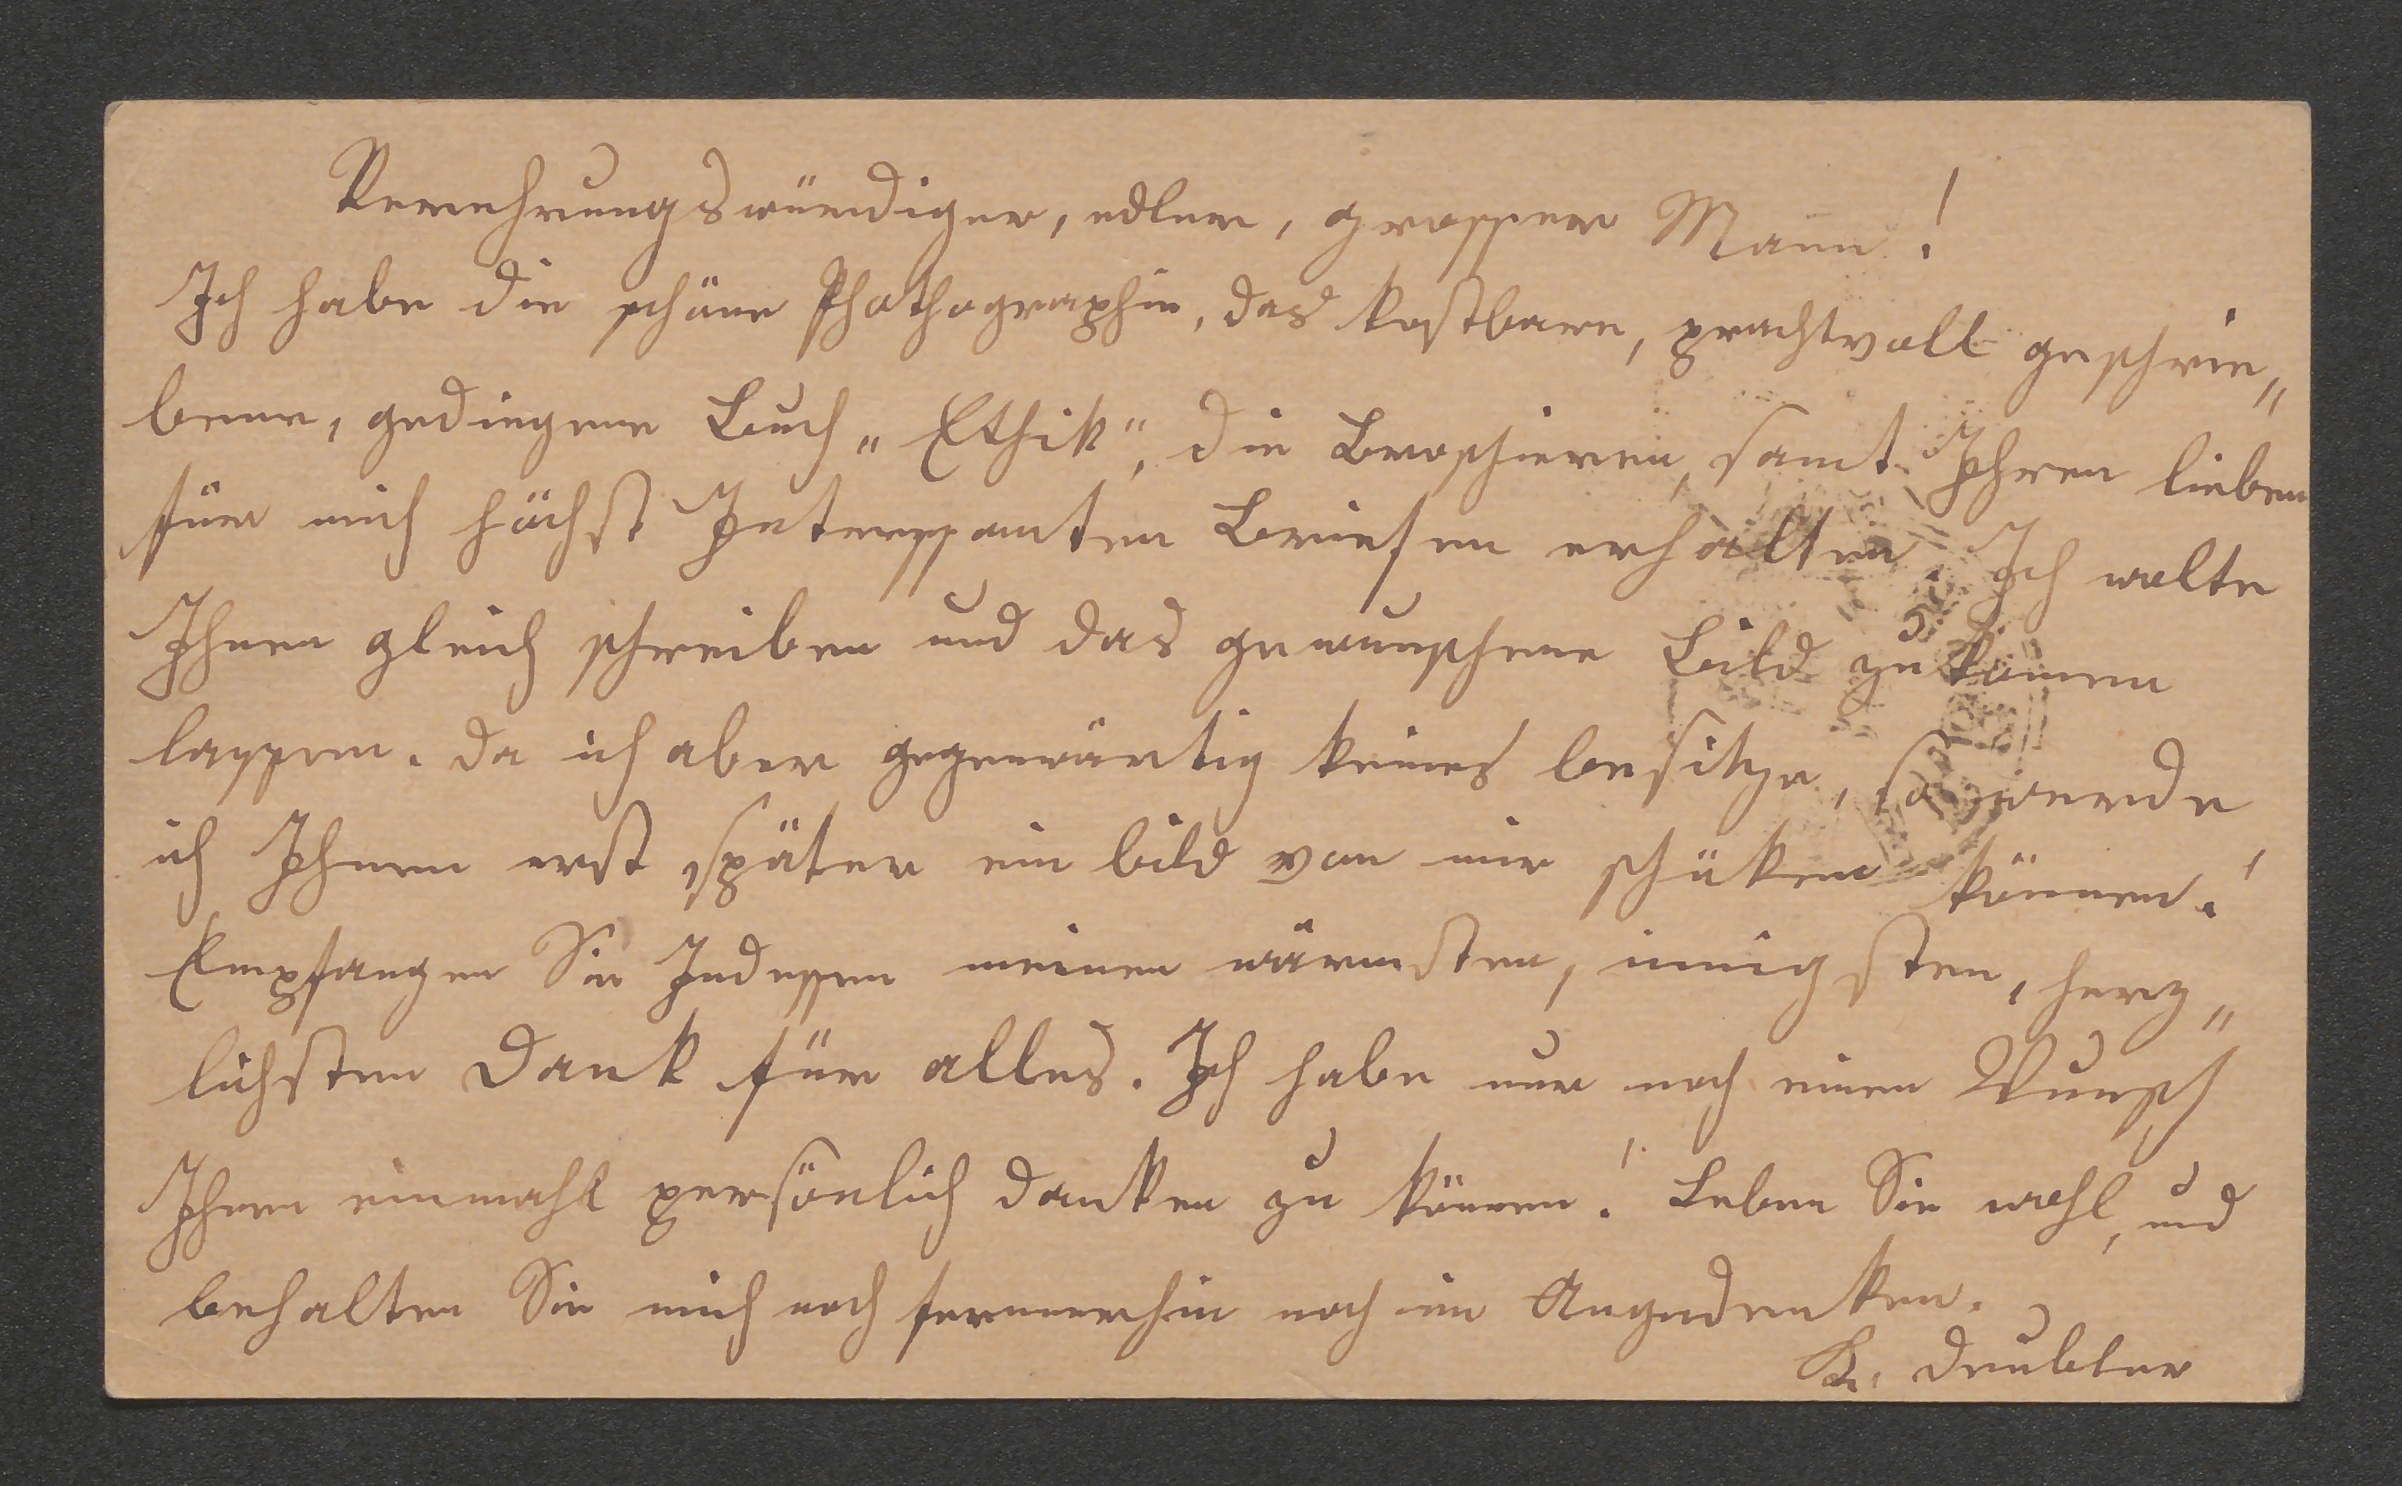 Verehrungswürdiger, edler, grosser Mann!
Ich habe die schöne Phothographie, das kostbare, prachtvoll geschrie„
bene, gediegene Buch „Ethik“, die Broschieren, samt Ihren lieben
für mich höchst Interessanten Briefen erhalten. Ich wolte
Ihnen gleich schreiben und das gewunschene Bild zukomen
lassen. Da ich aber gegenwärtig keines besitze, so werde
ich Ihnen erst später ein bild von mir schüken können!
Empfangen Sie Indessen meinen wärmsten, innigsten, herz„
lichsten Dank für alles. Ich habe nur noch einen Wunsch
Ihnen einmahl persönlich danken zu können! Leben Sie wohl, und
behalten Sie mich noch fernnerhin noch im Angedenken.
K. Deubler